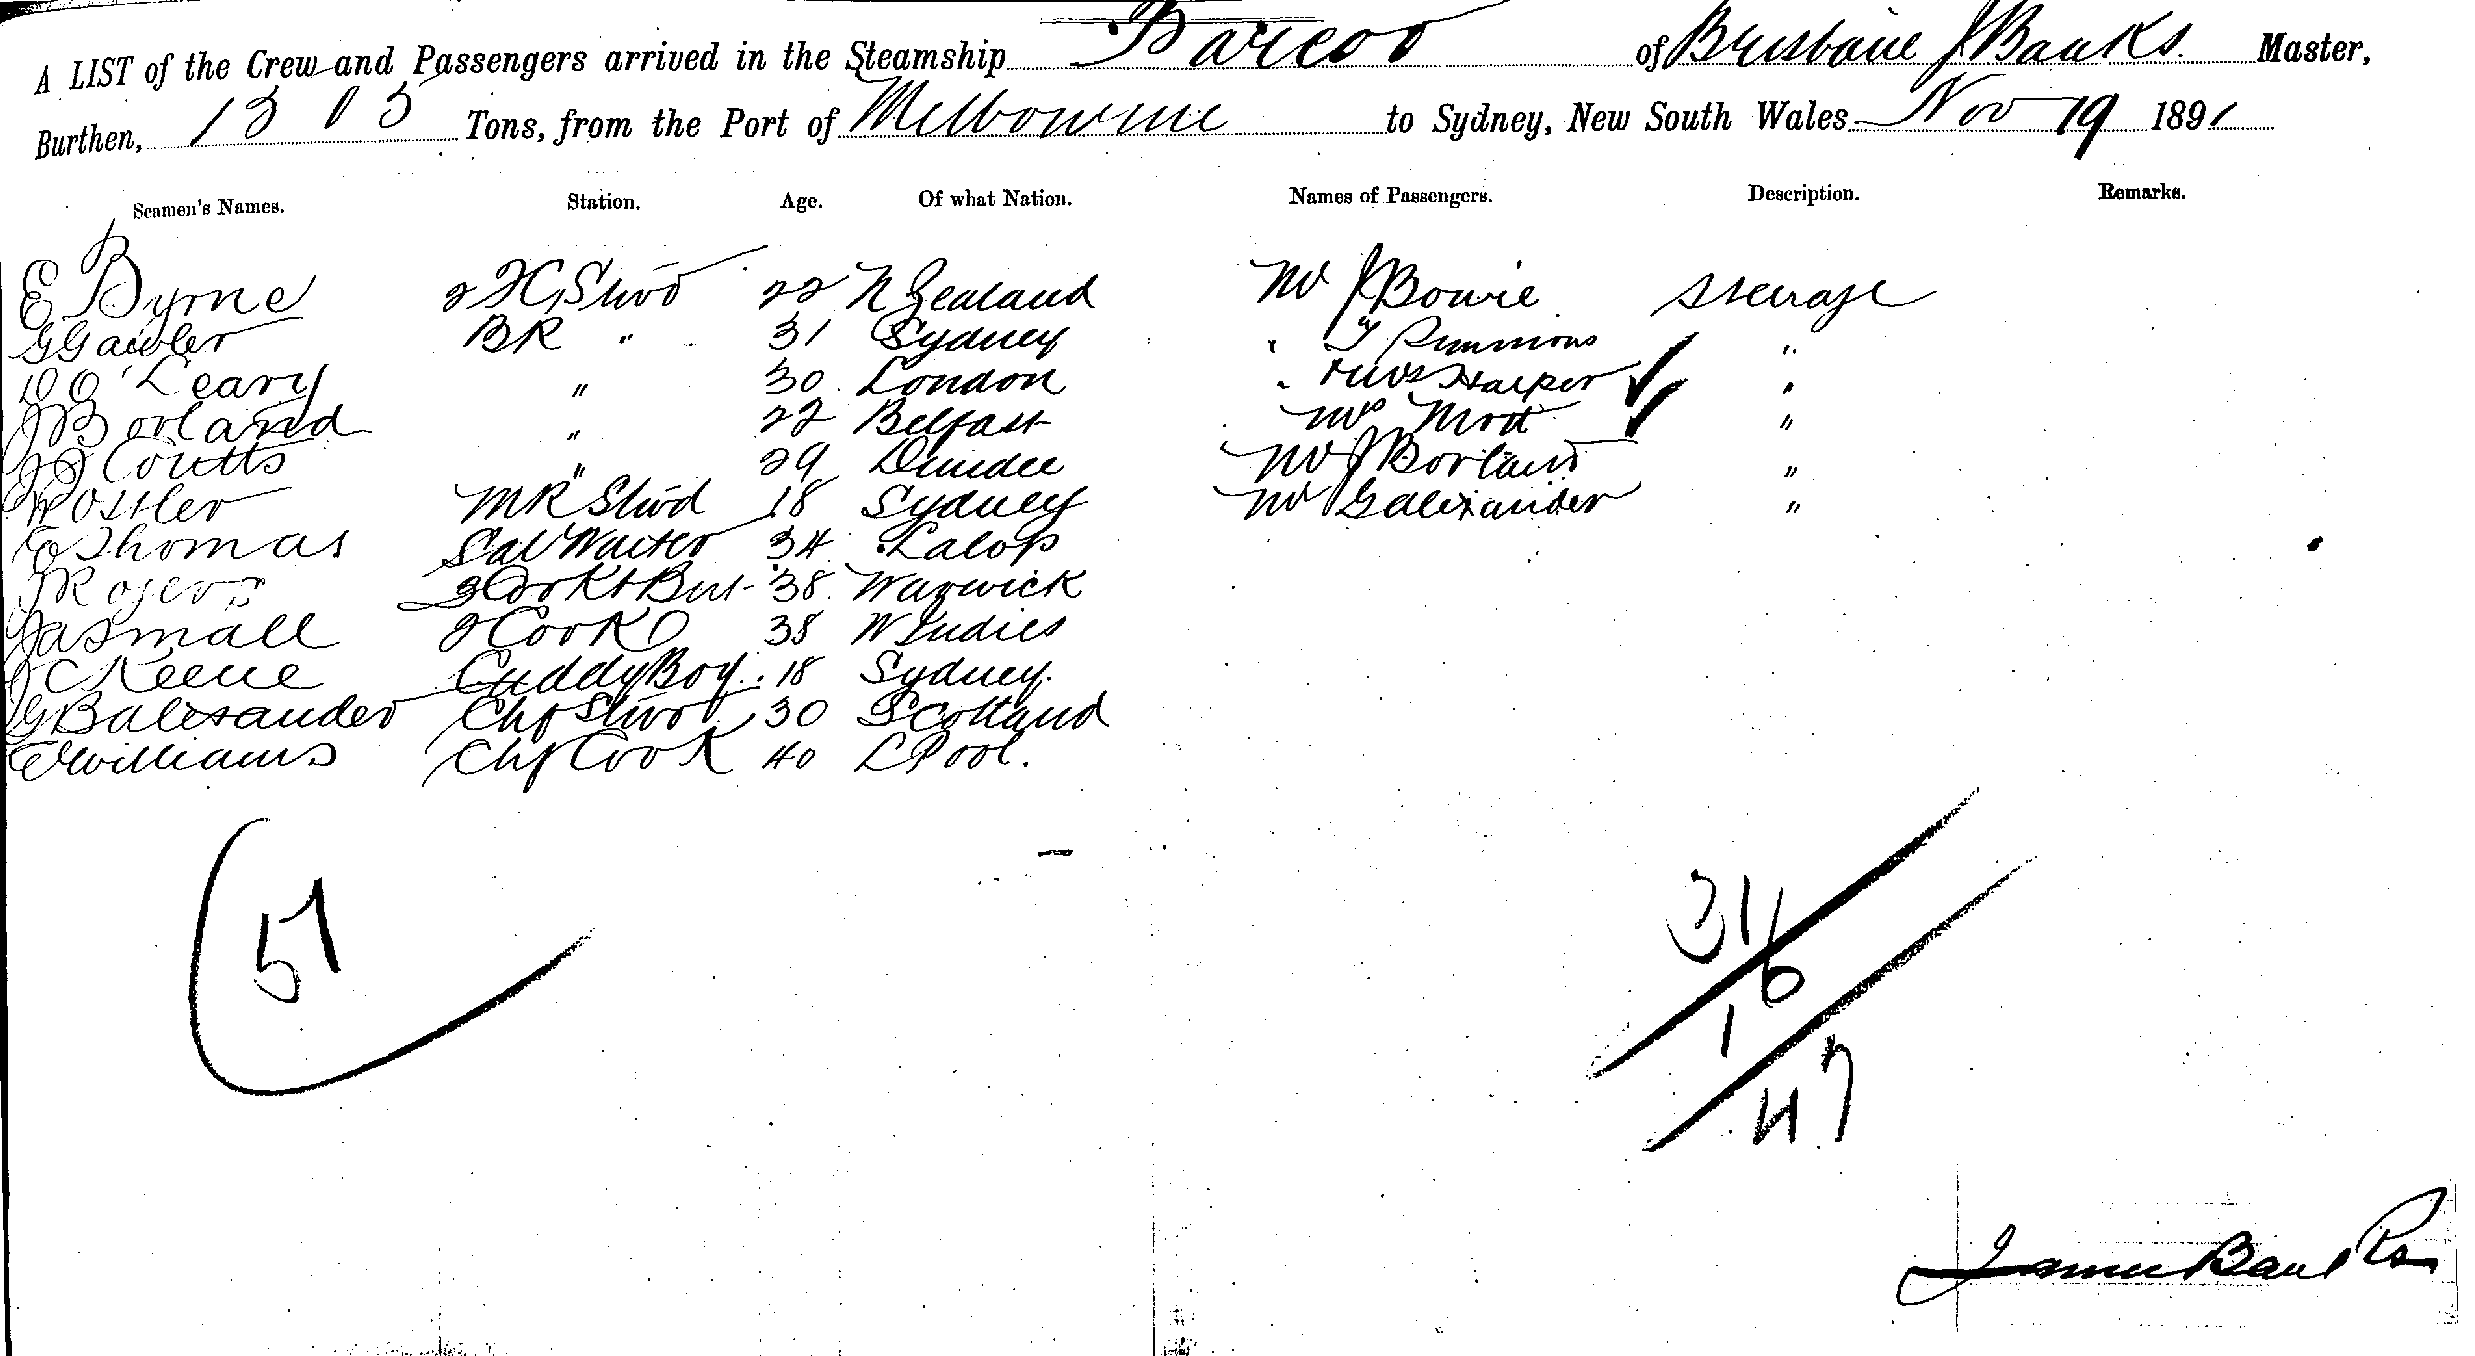 A LIST of the Crew and Passengers arrived in the Steamship Barcoo of Brisbane J Banks Master,
Burthen, 1505 Tons, from the Port of Melbourne to Sydney, New South Wales Nov 19 1891
Seamen's Names. Station. Age. Of what Nation. Names of Passengers. Description. Remarks.
E Byrne 2 Stwd 22 N Zealand Mr J Bowie Steerage
G Gawler BR " 31 Sydney " "
D O'Leary " 30 London " Harper "
J Borland " 22 Belfast "
Coutts " 29 Dundee Mr J Borland "
Ostler MR Stwd 18 Sydney Mr G Alexander "
E Thomas Sal Waiter 34 Salop
J Rogers 3 Cook & But 38 Warwick
J A Small 2 Cook 38 W Indies
J C Keene Cuddy Boy 18 Sydney.
G B Alexander Chf Stwd 30 Scotland
E Williams Chf Cook 40 L Pool.
51
31
16
47
James Banks